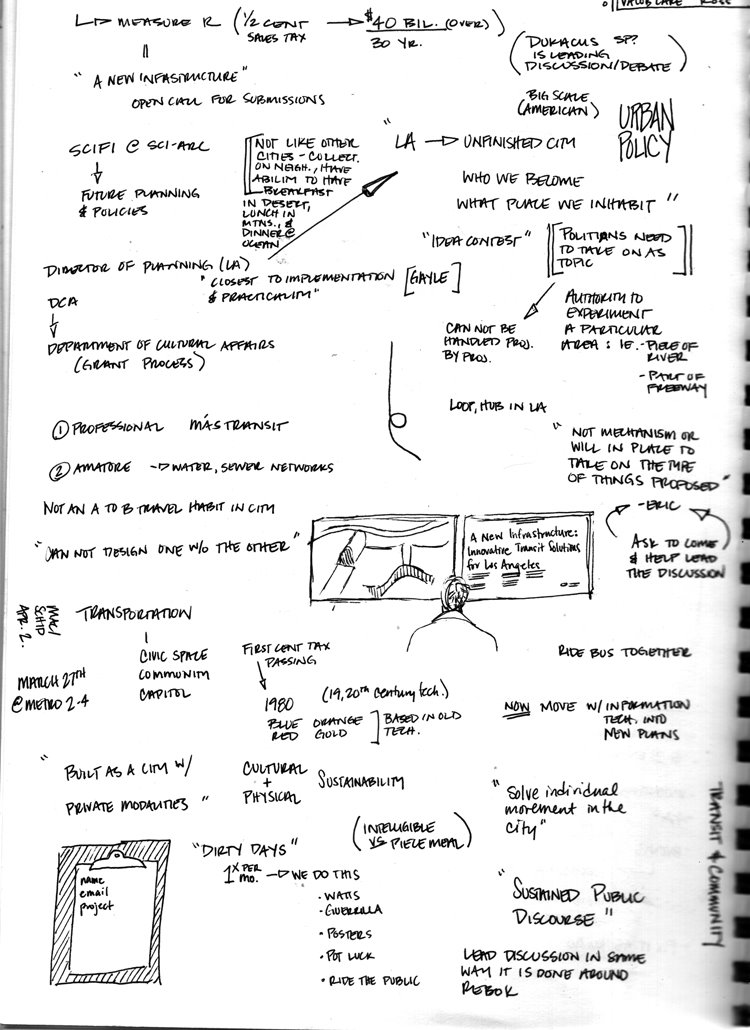 L → MEASURE R (1/2 CENT SALES TAX → $40 BIL. (OVER)
30 YR.
"A NEW INFASTRUCTURE"
OPEN CALL FOR SUBMISSIONS
(DUKACUS SP?
IS LEADING
DISCUSSION/DEBATE)
BIG SCALE
(AMERICAN)
URBAN
POLICY
SCIFI @ SCI-ARC
↓
FUTURE PLANNING
& POLICIES
NOT LIKE OTHER
CITIES - COLLECT.
ON NEIGH., HAVE
ABILITY TO HAVE
BREAKFAST
IN DESERT,
LUNCH IN
MTNS., &
DINNER @
OCEAN
"LA → UNFINISHED CITY
WHO WE BECOME
WHAT PLACE WE INHABIT"
"IDEA CONTEST"
[POLITIANS NEED
TO TAKE ON AS
TOPIC]
DIRECTOR OF PLANNING (LA)
"CLOSEST TO IMPLEMENTATION
& PRACTICALITY" [GAYLE]
DCA
↓
DEPARTMENT OF CULTURAL AFFAIRS
(GRANT PROCESS)
CAN NOT BE
HANDLED PROJ.
BY PROJ.
AUTHORITY TO
EXPERIMENT
A PARTICULAR
AREA: IE. - PIECE OF
RIVER
- PART OF
FREEWAY
LOOP, HUB IN LA
① PROFESSIONAL MÁS TRANSIT
② AMATORE → WATER, SEWER NETWORKS
"NOT MECHANISM OR
WILL IN PLACE TO
TAKE ON THE TYPE
OF THINGS PROPOSED"
- ERIC
ASK TO COME
& HELP LEAD
THE DISCUSSION
NOT AN A TO B TRAVEL HABIT IN CITY
"CAN NOT DESIGN ONE W/O THE OTHER"
A New Infrastructure:
Innovative Transit Solutions
for Los Angeles
APR. 2.
MARCH 27TH
@ METRO 2-4
TRANSPORTATION
CIVIC SPACE
COMMUNITY
CAPITOL
FIRST CENT TAX
PASSING
1980
BLUE ORANGE
RED GOLD
(19, 20th century tech.)
BASED IN OLD
TECH.
RIDE BUS TOGETHER
NOW MOVE W/ INFORMATION
TECH. INTO
NEW PLANS
"BUILT AS A CITY W/
PRIVATE MODALITIES"
CULTURAL
+
PHYSICAL
SUSTAINABILITY
"Solve individual
movement in the
city"
TRANSIT & COMMUNITY
(INTELLIGIBLE
VS PIECEMEAL)
name
email
project
"DIRTY DAYS"
1X PER
MO. → WE DO THIS
· WATTS
· GUERRILLA
· POSTERS
· POT LUCK
· RIDE THE PUBLIC
"SUSTAINED PUBLIC
DISCOURSE"
LEAD DISCUSSION IN SAME
WAY IT IS DONE AROUND
REBOK